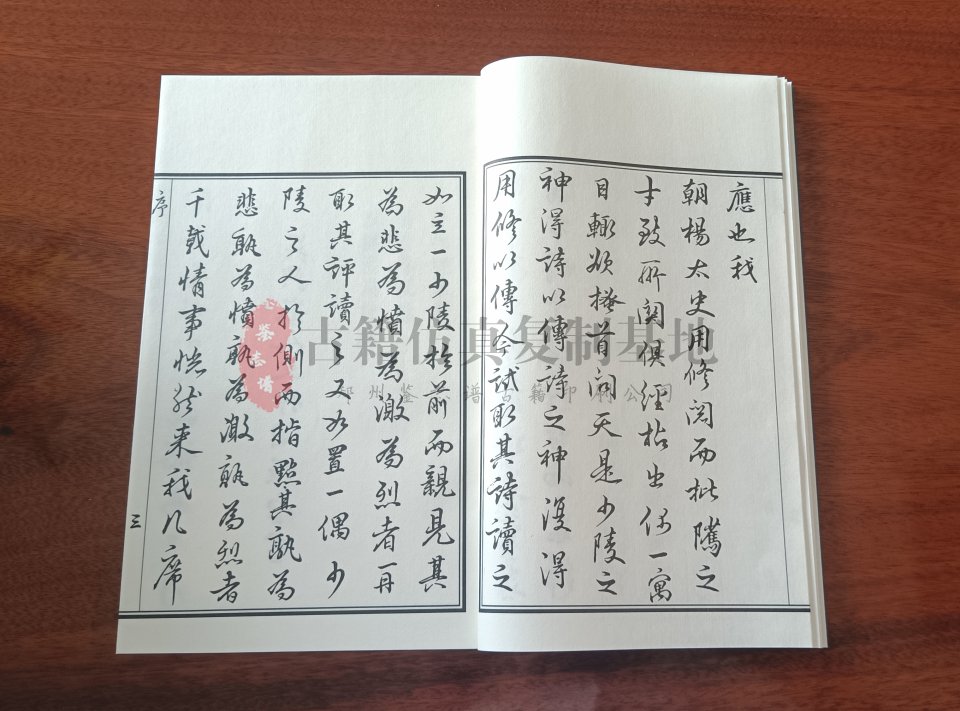 應也我
朝楊太史用修閱而批隲之
才致所関俱經拈出偶一寓
目輙欲搔首问天是少陵之
神得詩以傳詩之神漫得
用修以傳今試取其詩讀之
如立一少陵於前而親見其
為悲為憤為激為烈者再
取其評讀之又如置一偶少
陵之人於側而指點其孰為
悲孰為憤孰為激孰為烈者
千载情事恍然来我几席
序
三
古籍仿真复制基地
鉴志谱